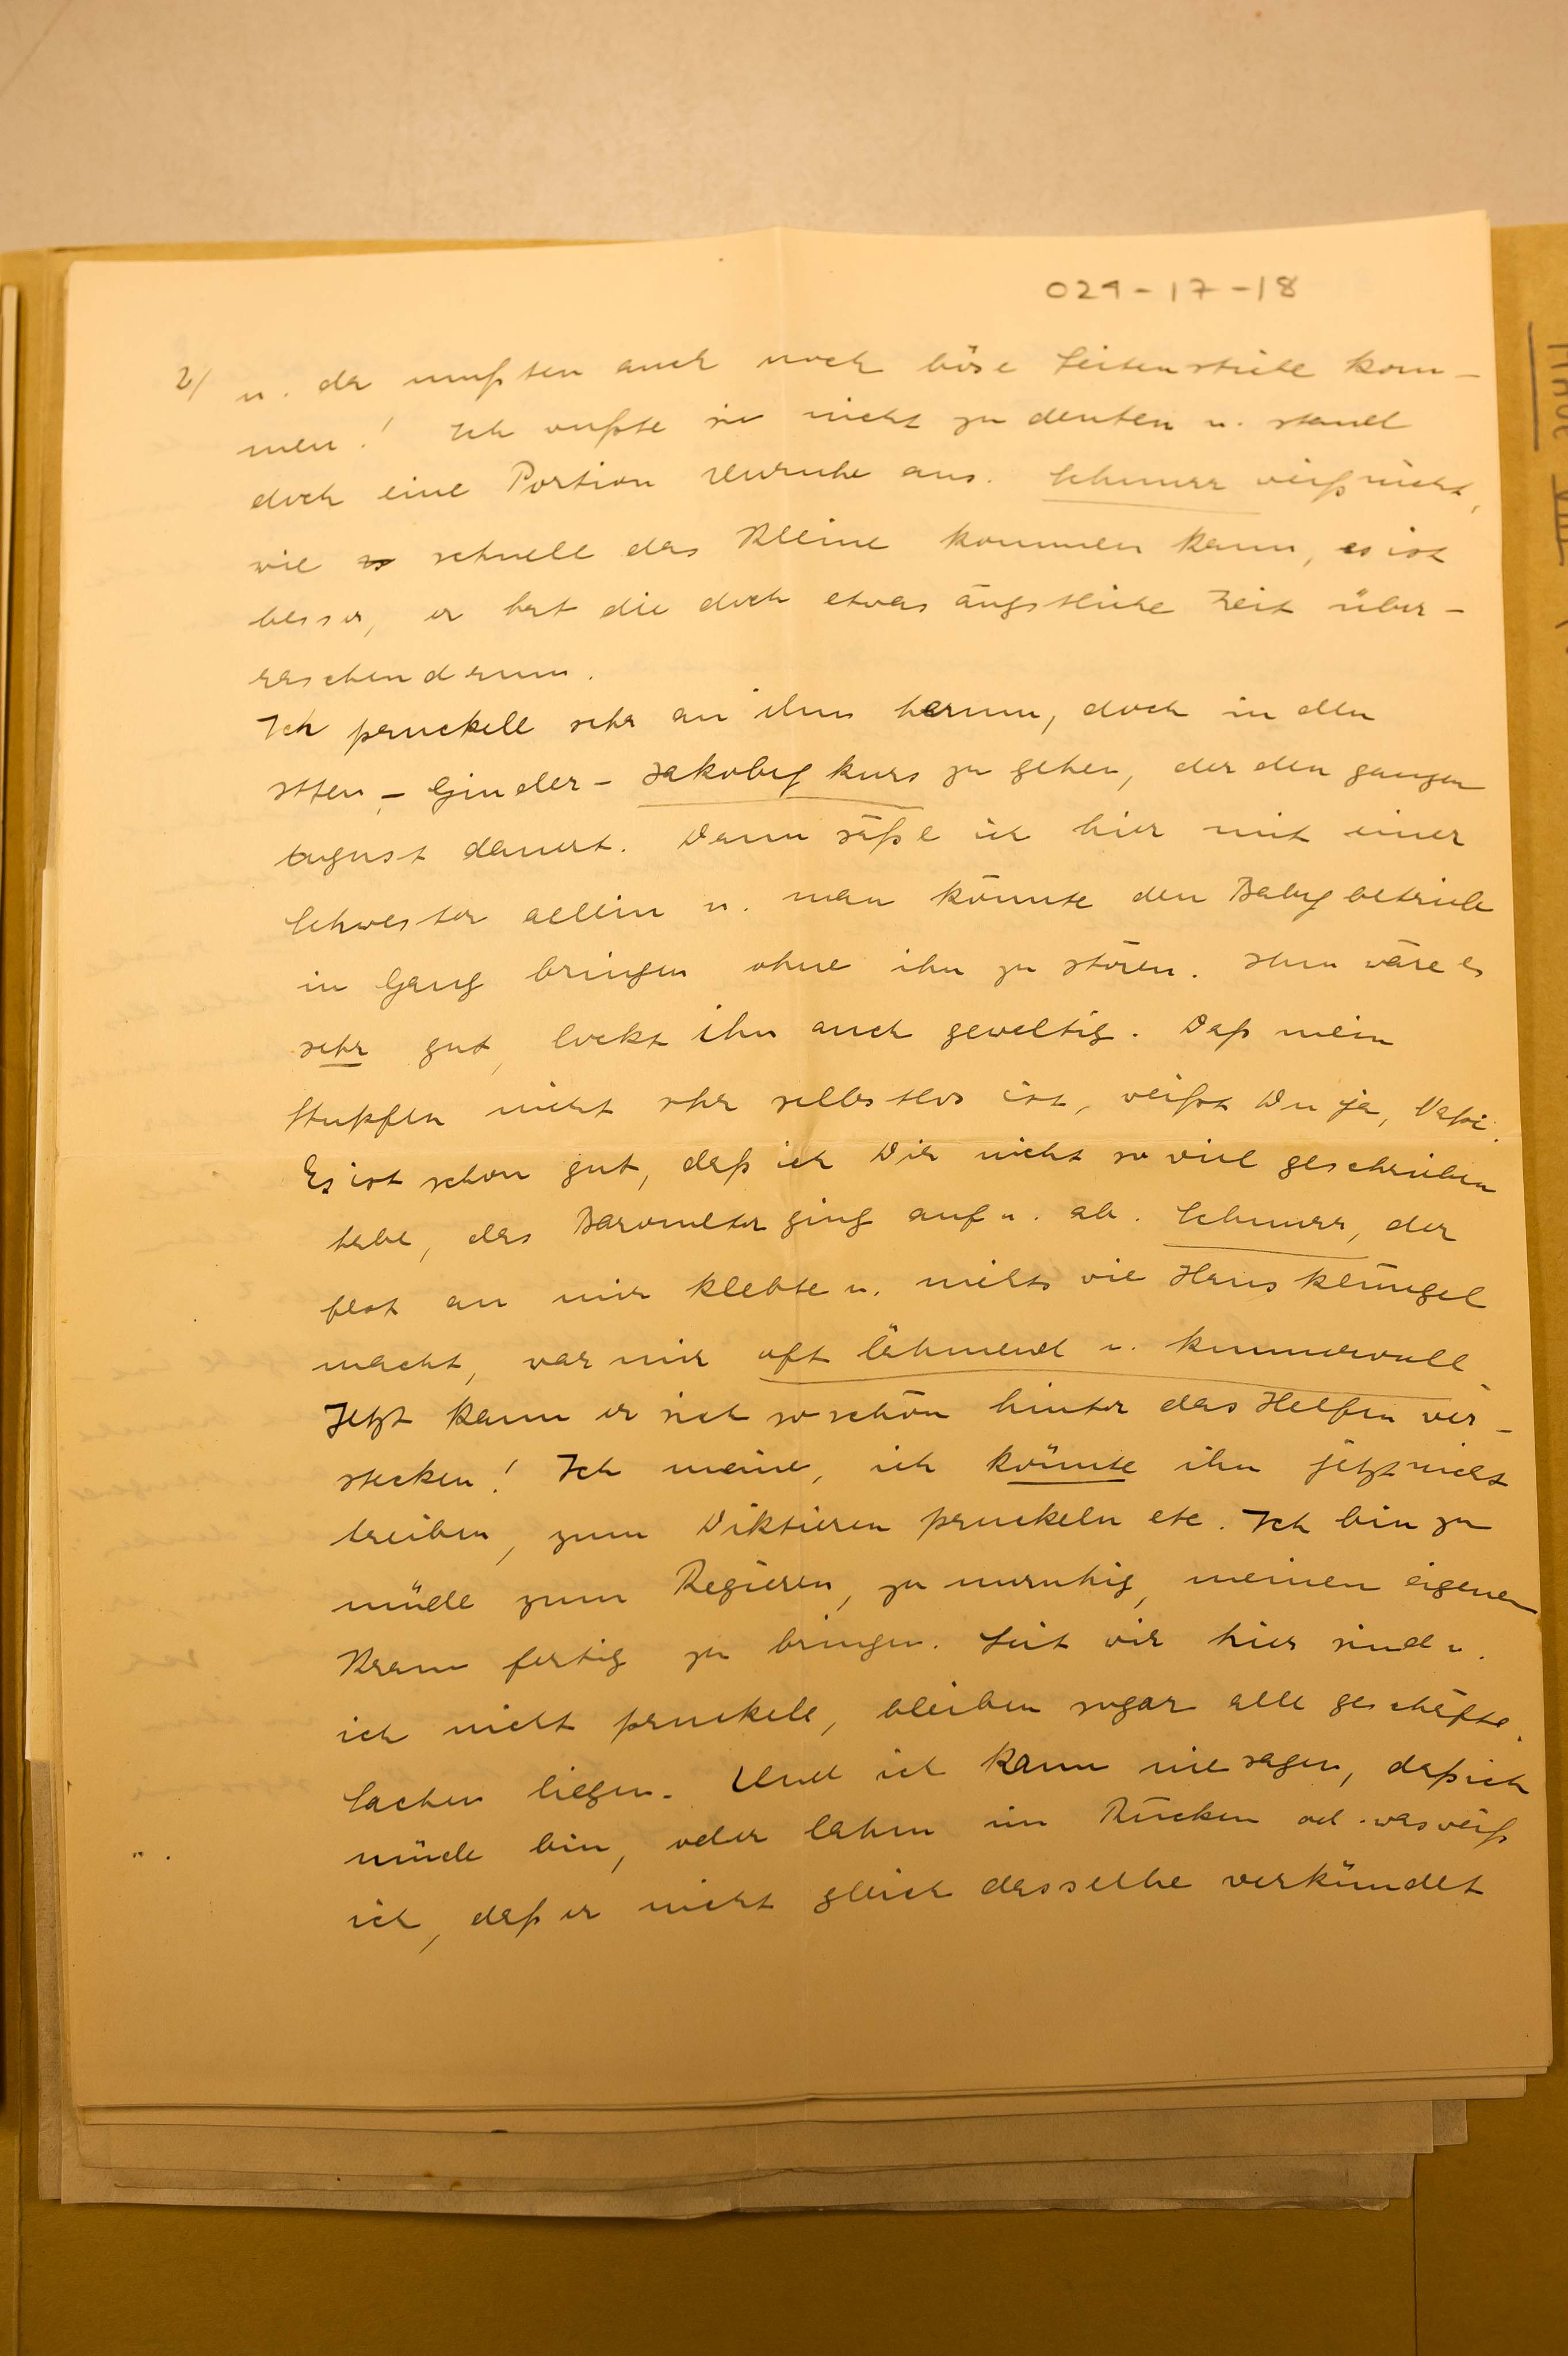 029-17-18
2/ u. da mußten auch noch böse Seitenstiche kom-
men! Ich wußte sie nicht zu deuten u. stand
doch eine Portion Unruhe aus. Schnurr weiß nicht,
wie schnell das Kleine kommen kann, es ist
besser, er hat die doch etwas ängstliche Zeit über-
raschend rum.
Ich pruckele sehr an ihm herum, doch in den
Itten-Gindler-Jakoby kurs zu gehen, der den ganzen
August dauert. Dann säße ich hier mit einer
Schwester allein u. man könnte den Babybetrieb
in Gang bringen ohne ihn zu stören. Ihm wäre es
sehr gut, lockt ihn auch gewaltig. Daß mein
Stupfen nicht sehr selbstlos ist, weißt Du ja,
Es ist schon gut, daß ich Dir nicht so viel geschrieben
habe, das Barometer ging auf u. ab. Schnurr, der
fest an mir klebte u. nichts wie Hausklüngel
macht, war mir oft lähmend u. kummervoll.
Jetzt kann er sich so schön hinter das Helfen ver-
stecken! Ich meine, ich könnte ihn jetzt nicht
treiben, zum Diktieren pruckeln etc. Ich bin zu
müde zum Regieren, zu unruhig, meinen eigenen
Kram fertig zu bringen. Seit wir hier sind u.
ich nicht pruckele, bleiben sogar alle geschäftl.
Sachen liegen. Und ich kann nie sagen, daß ich
müde bin, oder lahm im Rücken od. was weiß
ich, daß er nicht gleich dasselbe verkündet